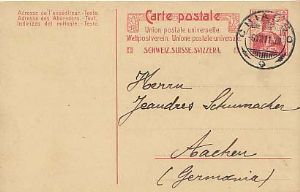 Carte postale
Union postale universelle
Weltpostverein. Unione postale universale
SCHWEIZ.SUISSE.SVIZZERA.
Adresse de l'expéditeur.-Texte.
Adresse des Absenders.-Text.
Indirizzo del mittente.-Testo.
CHIASSO
Herrn
Jeandres Schumacher
Aachen
(Germania)